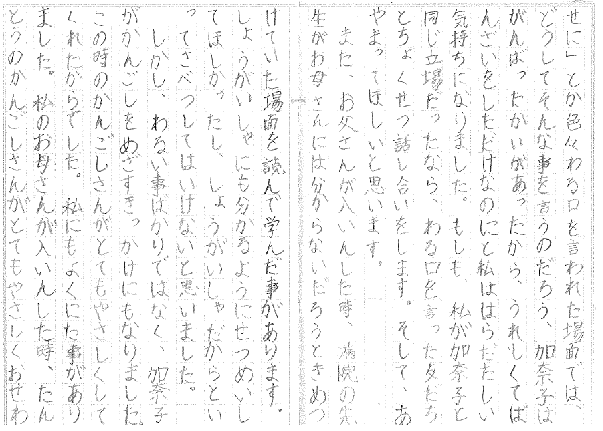 せに」とか色々わる口を言われた場面では、
どうしてそんな事を言うのだろう、加奈子は
がんばったかいがあったから、うれしくてば
んざいをしただけなのにと私ははらだたしい
気持ちになりました。もしも、私が加奈子と
同じ立場だったなら、わる口を言った友だち
とちょくせつ話し合いをします。そして、あ
やまってほしいと思います。
また、お父さんが入いんした時、病院の先
生がお母さんには分からないだろうときめつ
けていた場面を読んで学んだ事があります。
しょうがいしゃにも分かるようにせつめいし
てほしかったし、しょうがいしゃだからとい
ってさべつしてはいけないと思いました。
しかし、わるい事ばかりではなく、加奈子
がかんごしをめざすきっかけにもなりました。
この時のかんごしさんがとてもやさしくして
くれたからでした。私にもよくにた事があり
ました。私のお母さんが入いんした時、たん
とうのかんごしさんがとてもやさしくおせわ